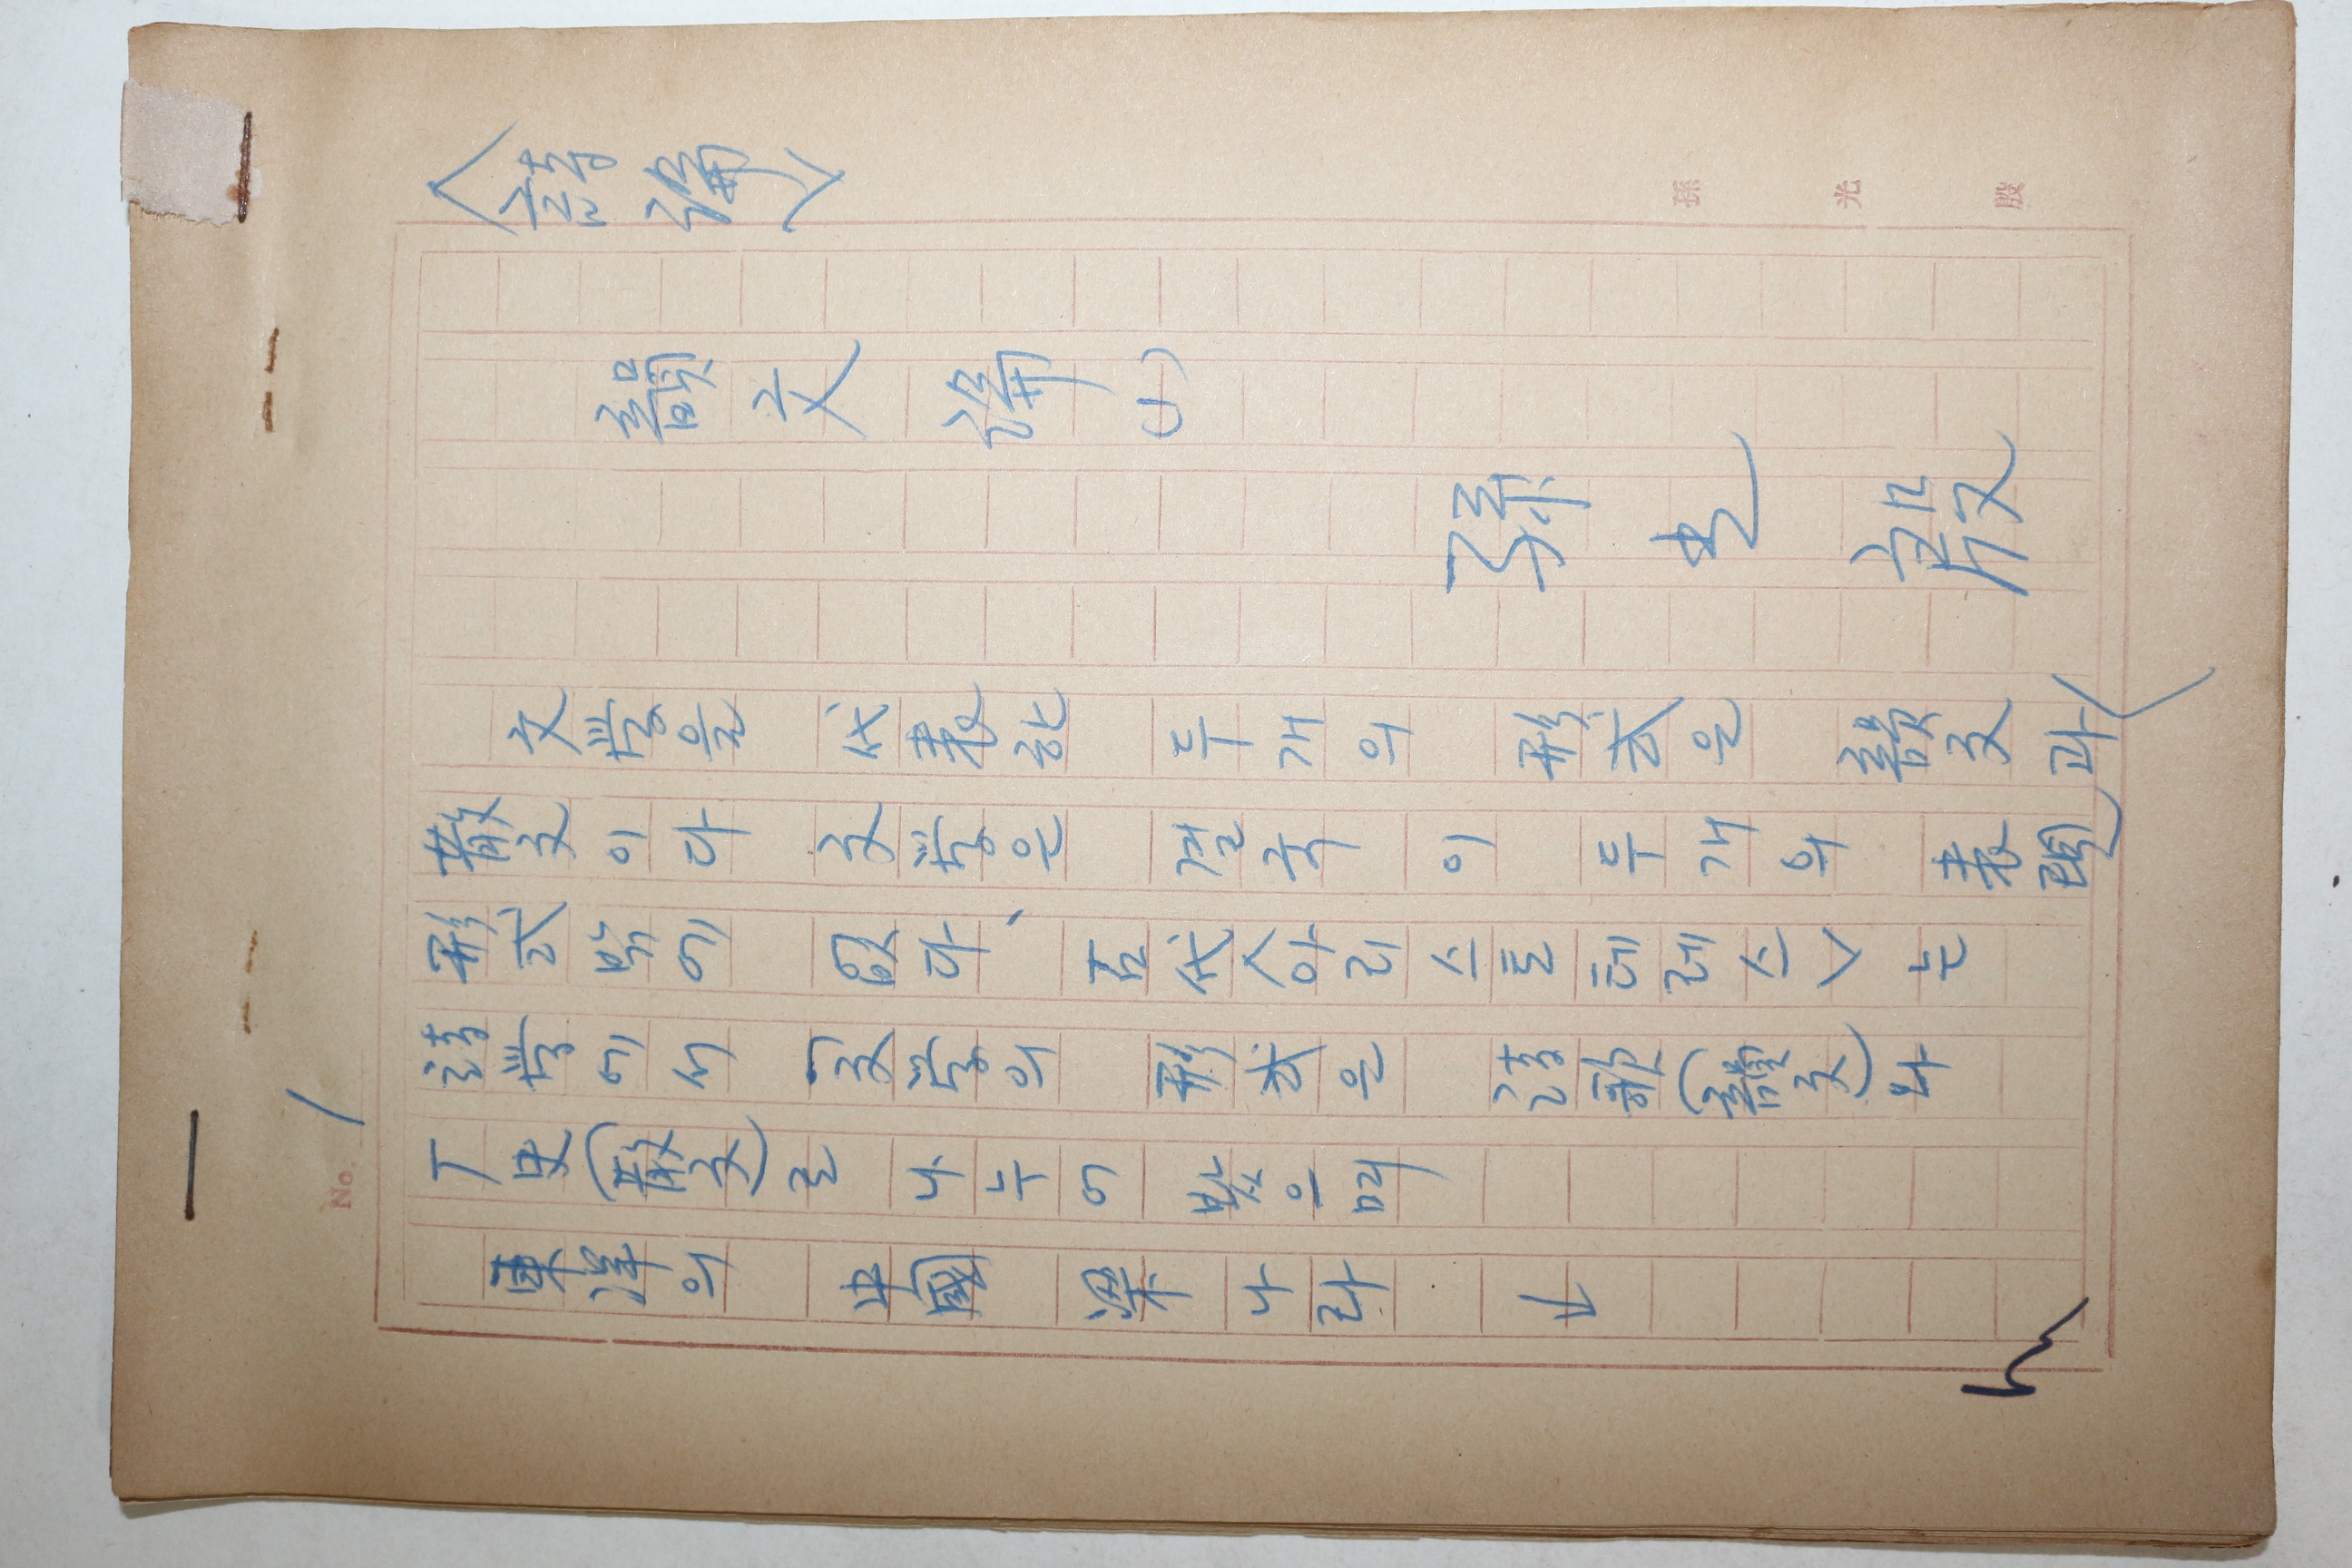 〈詩論〉
孫光殷
韻文論(1)
孫光殷
文學을 代表한 두개의 形式은 韻文과
散文이다 文學은 결국 이 두개의 表現
形式밖에 없다、古代〈아리스토테레스〉는
詩學에서 文學의 形式은 詩歌(韻文)나
厂史(散文)로 나누어 봤으며
東洋의 中國 梁나라
No. 1